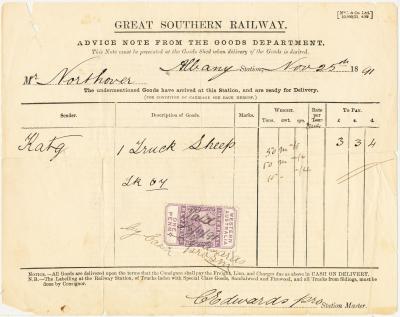 GREAT SOUTHERN RAILWAY.
ADVICE NOTE FROM THE GOODS DEPARTMENT.
This Note must be presented at the Goods Shed when delivery of the Goods is desired.
Albany Station, Nov 25th 1891
Mr Northover
The undermentioned Goods have arrived at this Station, and are ready for Delivery.
(FOR CONDITIONS OF CARRIAGE SEE BACK HEREOF.)
Sender. Description of Goods. Marks. WEIGHT. Rate per Ton. TO PAY.
Tons. cwt. qrs. £ s. d.
Katg 1 Truck Sheep 3 3 4
50 m
50 m
WESTERN AUSTRALIA
ONE PENNY
NOTICE.—All Goods are delivered upon the terms that the Consignee shall pay the Freight, Lien, and Charges due as above in CASH ON DELIVERY.
N.B.—The Labelling at the Railway Station, of Trucks laden with Special Class Goods, Sandalwood and Firewood, and all Trucks from Sidings, must be done by Consignor.
C Edwards pro Station Master.